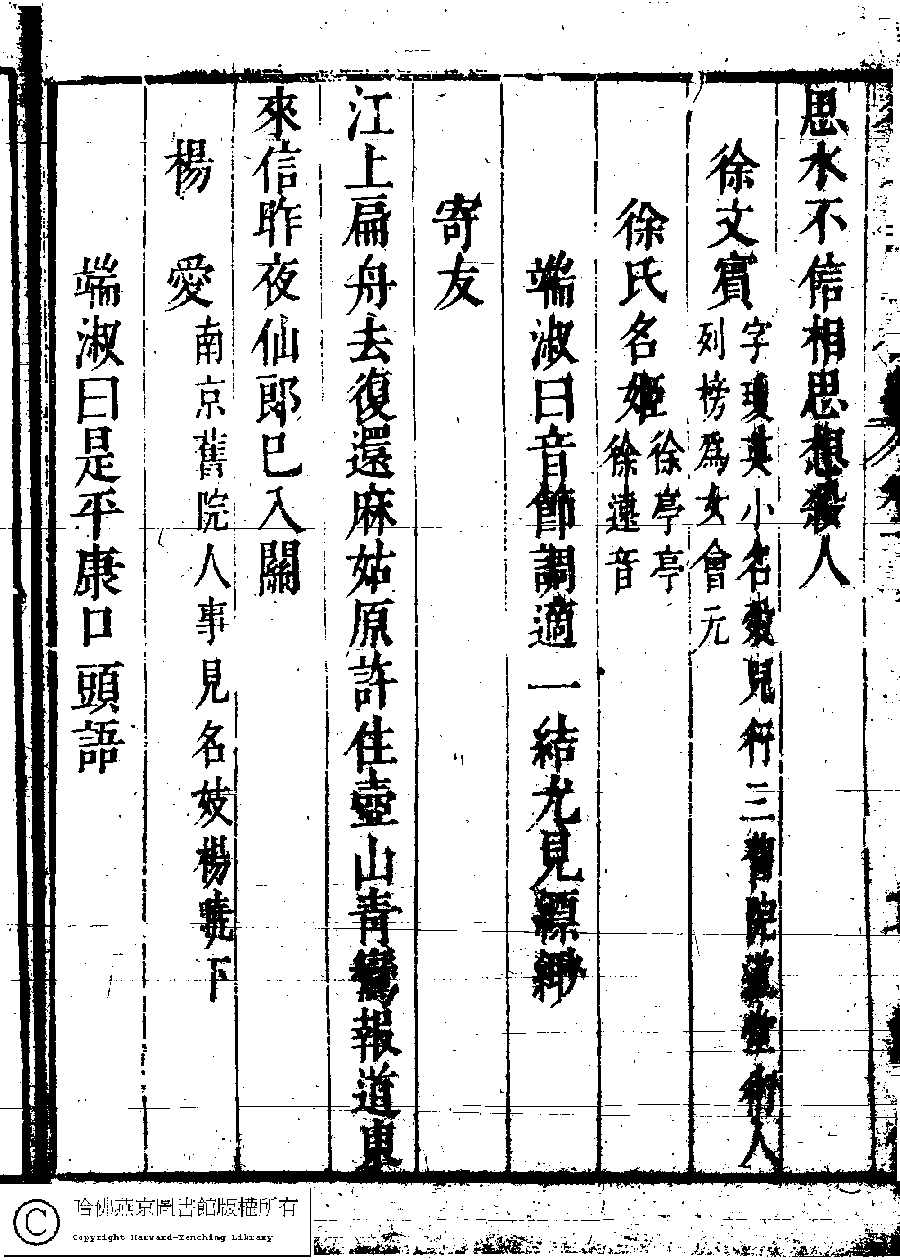 思水不信相思想殺人
徐文賓 字瓊英小名殺兒行三舊院道堂街人
列榜為女會元
徐氏名姬 徐亭亭
徐遠音
端淑曰音節調適一結尤見縹緲
寄友
江上扁舟去復還麻姑原許住壺山青鸞報道東
來信昨夜仙郎已入關
楊愛 南京舊院人事見名妓楊下
端淑曰是平康口頭語
哈佛燕京圖書館版權所有
Copyright Harvard-Yenching Library